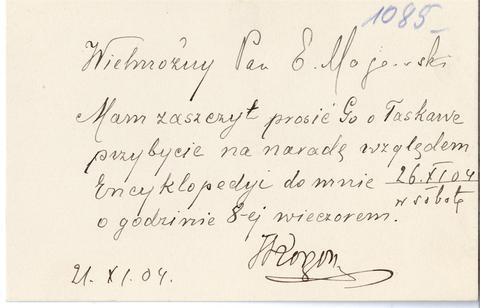 1085
Wielmożny Pan E. Majewski
Mam zaszczyt prosić Go o łaskawe
przybycie na naradę względem
Encyklopedyi do mnie 26.XI 04
w sobotę
o godzinie 8-ej wieczorem.
21. XI. 04.